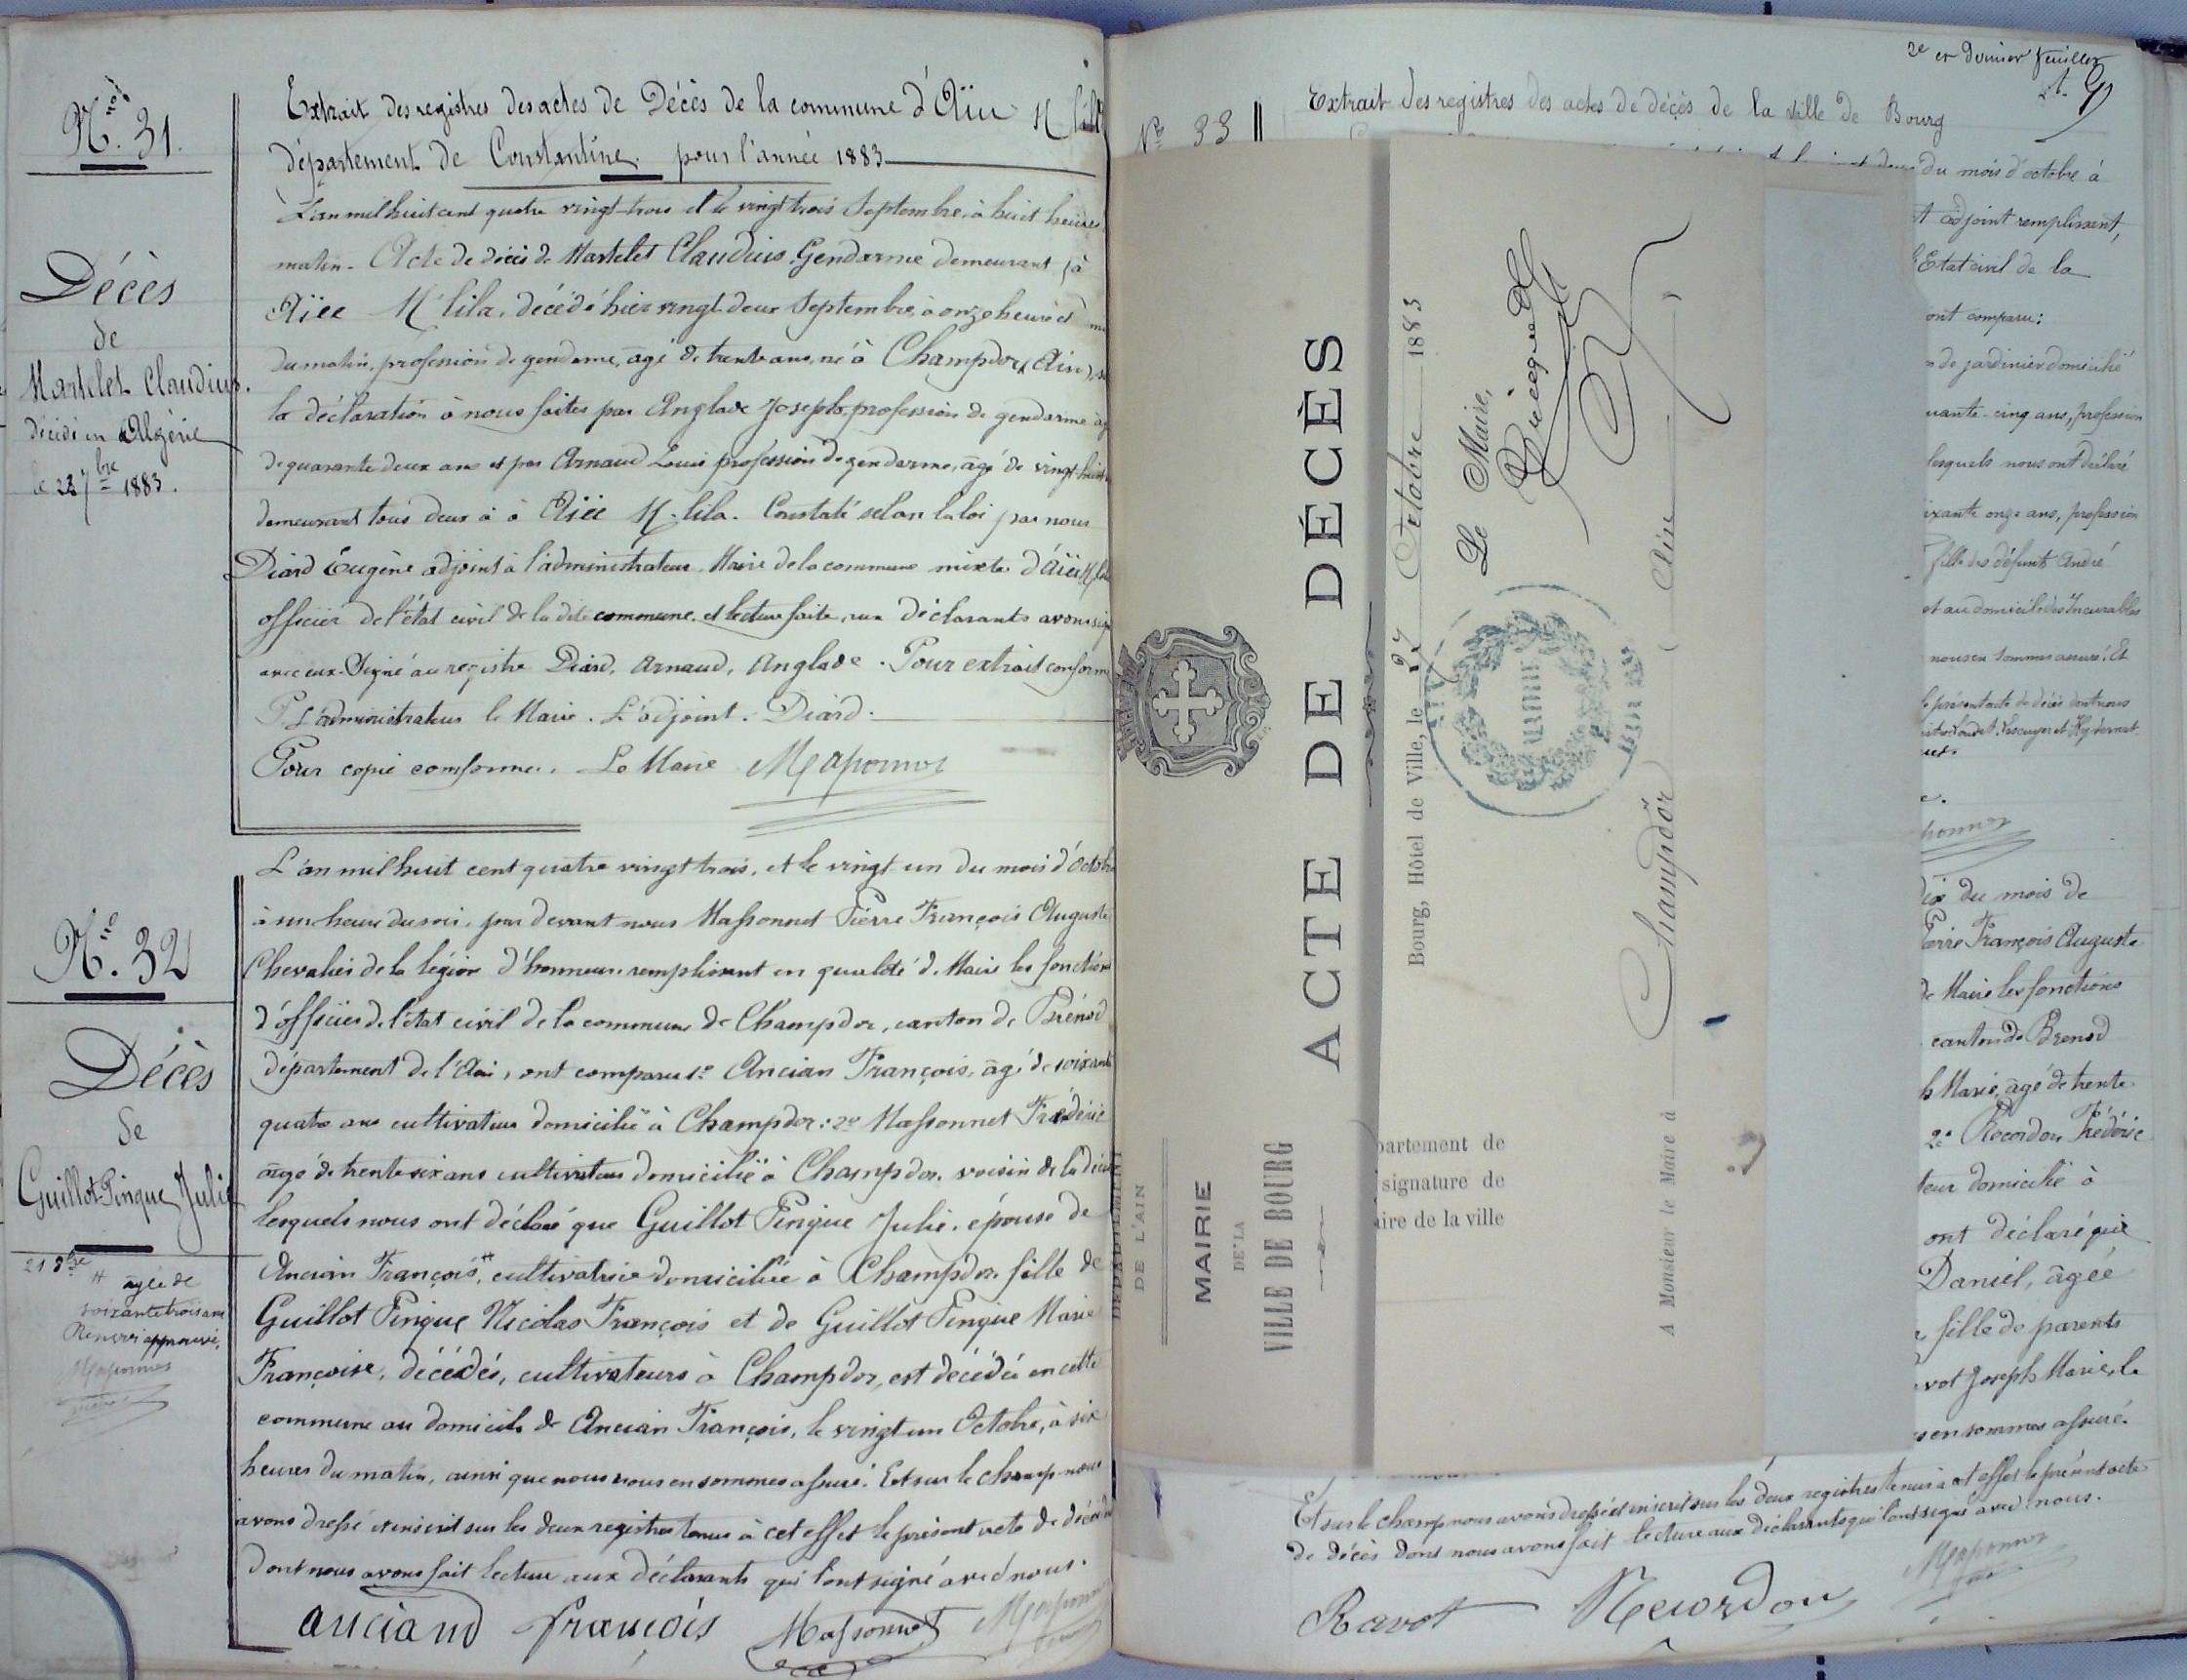 No. 31.
Décès
de
Martelet Claudius.
décédé en Algérie
le 22 7bre 1883.
Extrait des registres des actes de Décès de la commune d'Aïn M'lila
département de Constantine pour l'année 1883
L'an mil huit cent quatre vingt-trois et le vingt trois Septembre, à huit heures
matin. Acte de décès de Martelet Claudius Gendarme demeurant à
Aïn M'lila, décédé hier vingt deux Septembre, à onze heures et
du matin, profession de gendarme, âgé de trente ans, né à Champdor (Ain),
la déclaration à nous faite par Anglade Joseph, profession de gendarme
de quarante deux ans et par Arnaud Louis profession de gendarme, âgé de vingt-huit
demeurant tous deux à à Aïn M'lila. Constaté selon la loi par nous
Diard Eugène adjoint à l'administrateur, Maire de la commune mixte d'Aïn M'lila
officier de l'état civil de la dite commune, et lecture faite, aux déclarants avons signé
avec eux. Signé au registre Diard, Arnaud, Anglade. Pour extrait conforme
P. L'administrateur le Maire. L'adjoint. Diard.
Pour copie conforme. Le Maire Massonnet
No. 32
Décès
de
Guillot-Pingue Julie
21 8bre
# âgée de
soixante trois ans
Renvoi approuvé.
Massonnet
L'an mil huit cent quatre vingt trois, et le vingt un du mois d'Octobre
à une heure du soir, par devant nous Massonnet Pierre François Auguste
Chevalier de la légion d'honneur remplissant en qualité de Maire les fonctions
d'officier de l'état civil de la commune de Champdor, canton de Brénod
département de l'Ain, ont comparu 1º Ancian François, âgé de soixante
quatre ans cultivateur domicilié à Champdor: 2º Massonnet Frédéric
âgé de trente six ans cultivateur domicilié à Champdor, voisin de la
lesquels nous ont déclaré que Guillot Pingue Julie, épouse de
Ancian François #, cultivatrice domiciliée à Champdor, fille de
Guillot Pingue Nicolas François et de Guillot Pingue Marie
Françoise, décédés, cultivateurs à Champdor, est décédée en cette
commune au domicile de Ancian François, le vingt un Octobre, à six
heures du matin, ainsi que nous nous en sommes assuré. Et sur le champ nous
avons dressé et inscrit sur les deux registres tenus à cet effet le présent acte de décès
dont nous avons fait lecture aux déclarants qui l'ont signé avec nous.
anciand françois Massonnet Massonnet
2e et dernier feuillet
No 33
Extrait des registres des actes de décès de la ville de Bourg
du mois d'octobre à
adjoint remplissant,
Etat civil de la
ont comparu:
de jardinier domicilié
cinq ans, profession
lesquels nous ont déclaré
onze ans, profession
fille des défunts André
au domicile des Incurables
nous en sommes assuré. Et
le présent acte de décès dont nous
DÉPARTEMENT
DE L'AIN
MAIRIE
DE LA
VILLE DE BOURG
ACTE DE DÉCÈS
Bourg, Hôtel de Ville, le 27 Octobre 1883
Le Maire,
MAIRIE
partement de
signature de
aire de la ville
A Monsieur le Maire à Champdor (Ain)
dix du mois de
François Auguste
de Maire les fonctions
canton de Brenod
Marie, âgé de trente
2º Recordon Frédéric
domicilié à
ont déclaré que
Daniel, âgée
fille de parents
Joseph Marie, le
en sommes assuré.
Et sur le champ nous avons dressé et inscrit sur les deux registres tenus à cet effet le présent acte
de décès dont nous avons fait lecture aux déclarants qui l'ont signé avec nous.
Ravot Recordon Massonnet